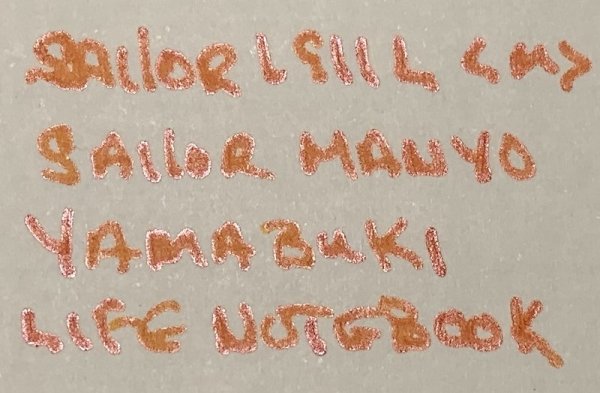 SAilOR L SIIL <M>
SAilOR MANYO
YAMABUKI
LIFE NOTEBOOK